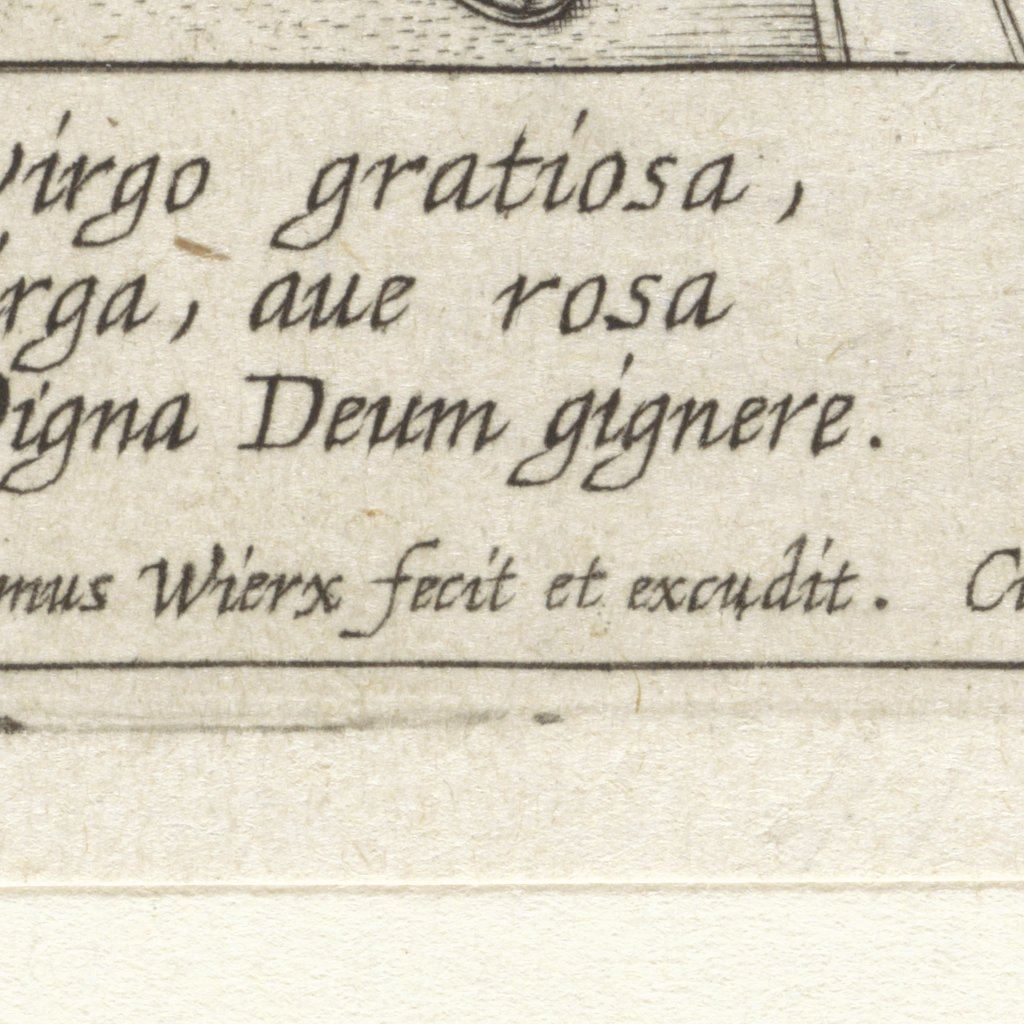 virgo gratiosa,
rga, aue rosa
Digna Deum gignere.
mus Wierx fecit et excudit. Cu